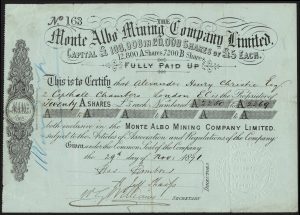 No 163
THE
Monte Albo Mining Company Limited.
CAPITAL £100,000 IN 20,000 SHARES OF £5 EACH.
12,800 A SHARES 7,200 B SHARES
FULLY PAID UP
This is to Certify that Alexander Henry Christie Esq
2 Copthall Chambers London is the Proprietor of
Seventy A SHARES of £5 each, Numbered
both inclusive in the MONTE ALBO MINING COMPANY LIMITED.
subject to the Articles of Association and Regulations of the Company.
Given under the Common Seal of the Company
the 29th day of Nov: 1891
DIRECTORS
SECRETARY